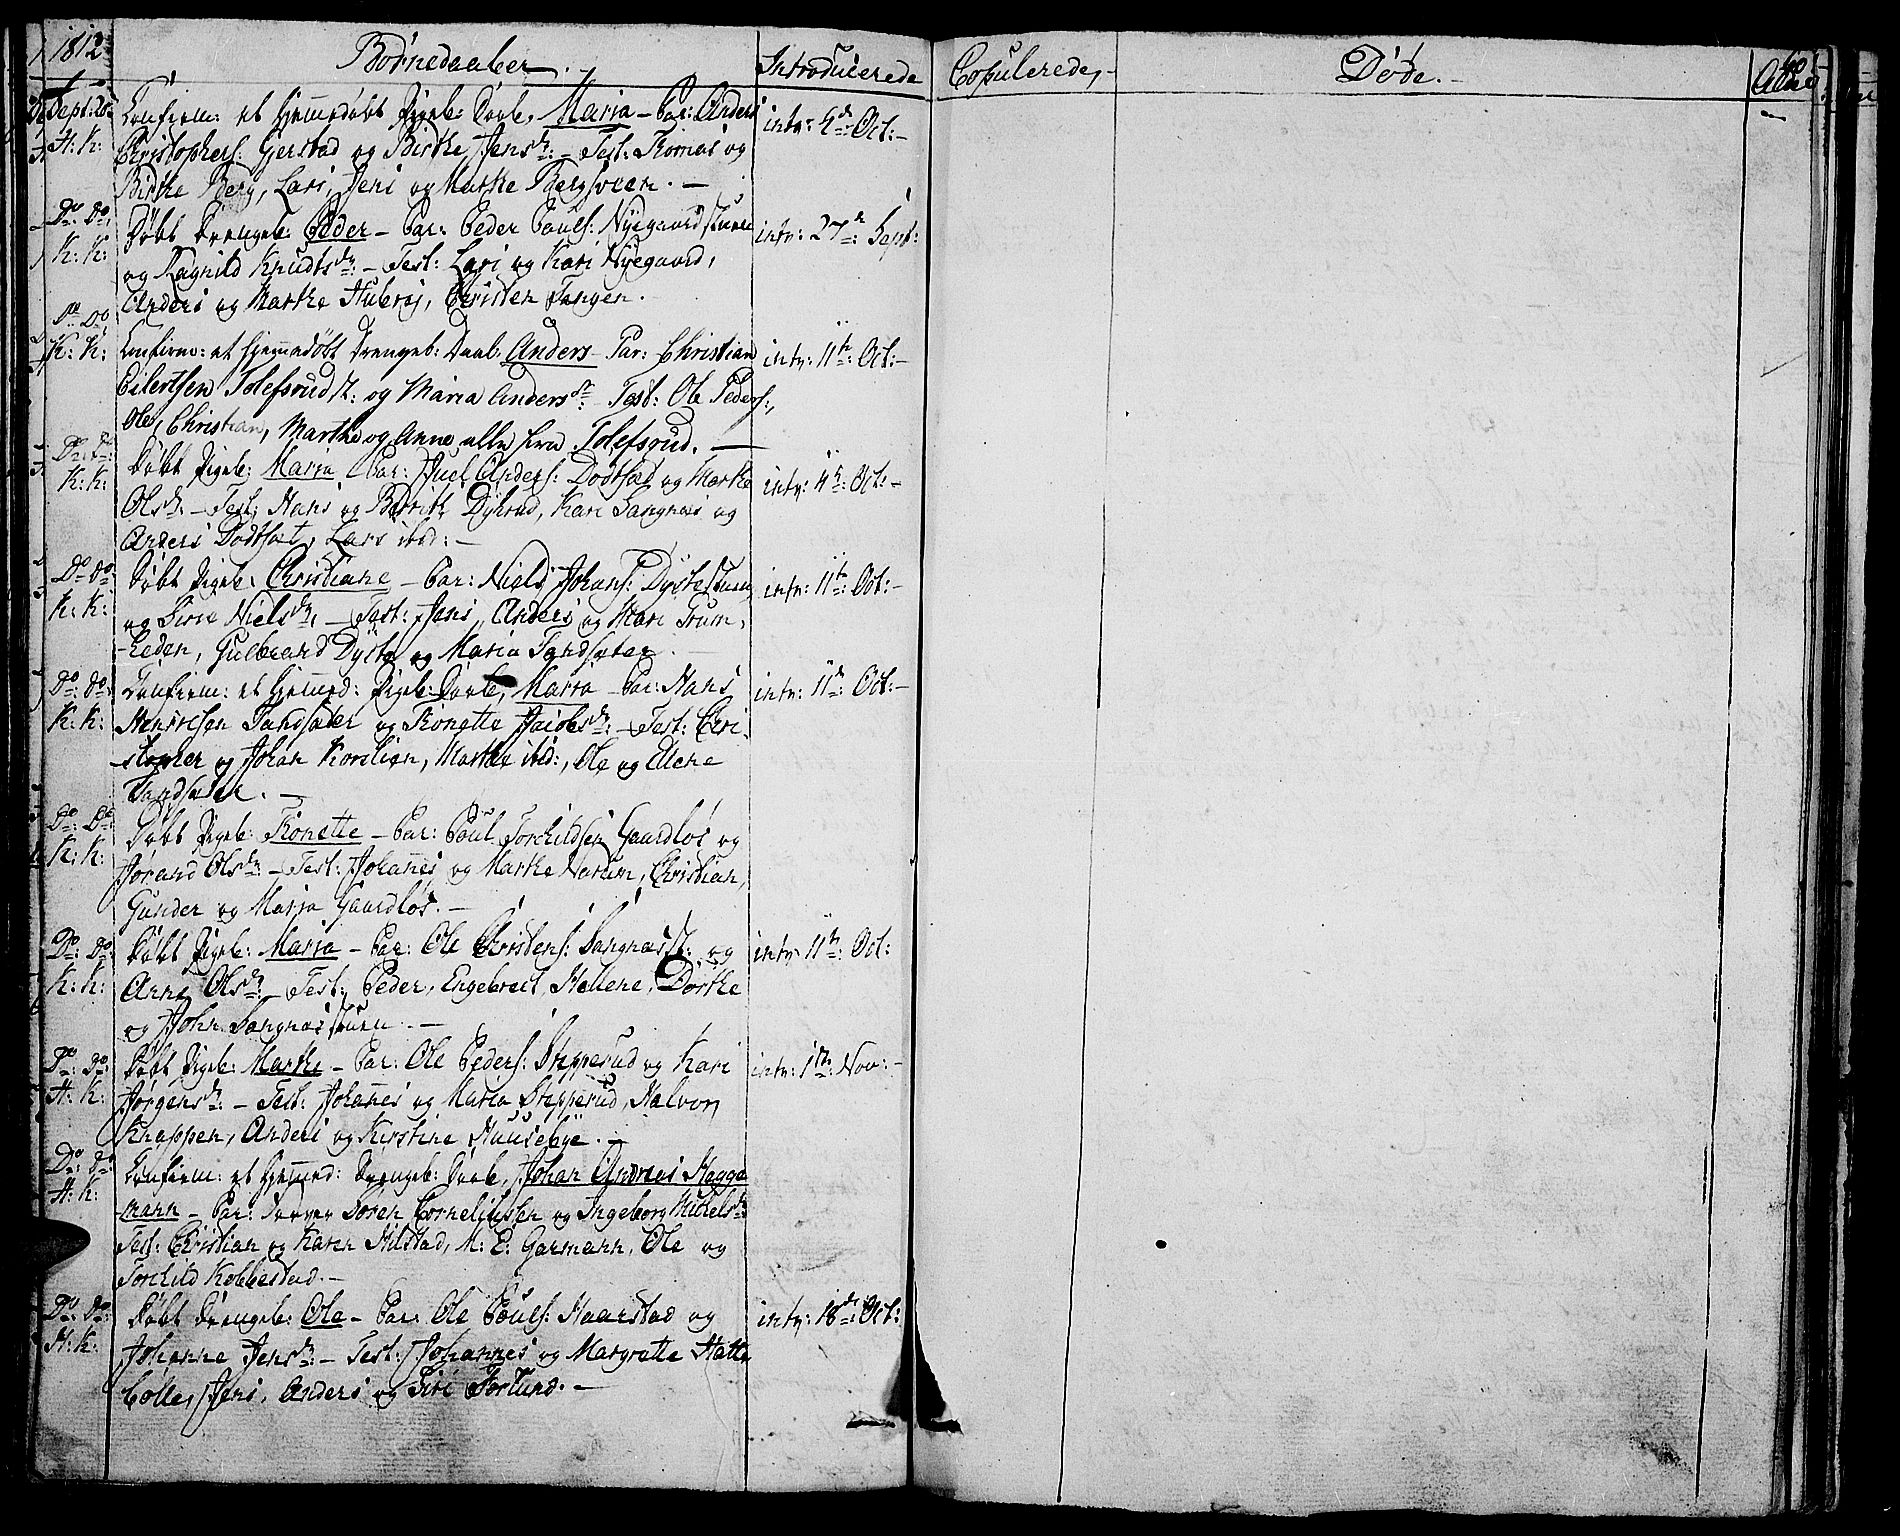 1812
Børnedaaber.
Introducerede
Copulerede,
Døde.
Sept: 20
H: K:
Confirm: et hjemmedøbt Pigeb: Daab, Maria – Par: Anders
Christophers: Gjerstad og Birthe Jensdr: – Test: Thomas og
Birthe Berg, Lars, Jens og Marthe Bergsveen. –
intr: 4de Oct: –
Do Do
K: K:
Døbt Drengeb: Peder – Par: Peder Pouls: Nyegaardstuen
og Ragnild Knudsdr: – Test: Lars og Kari Nyegaard,
Anders og Marthe Huberg, Christen Tangen.
intr: 27de Sept:
Do Do
K: K:
Confirm: et hjemmedøbt Drengeb: Daab: Anders – Par: Christian
Eilertsen Tolefsrud og Maria Andersdr: Test: Ole Peders:,
Ole, Christian, Marthe og Anne alle fra Tolefsrud. –
intr: 11te Oct: –
Do Do
K: K:
Døbt Pigeb: Maria – Par: Juel Anders: Dødtsæt og Marthe
Olsdr: – Test: Hans og Berith Dyhrud, Kari Sangnæs og
Anders Dødtsæt, Lars ibd: –
intr: 4de Oct: –
Do Do
K: K:
Døbt Pigeb: Christiane – Par: Niels Johans: Dystestuen
og Sirie Nielsdr: – Test: Jens, Anders og Mari Trum-
-leden, Gulbrand Dyste og Maria Sandsater. –
intr: 11te Oct: –
Do Do
K: K:
Confirm: et hjemmed: Pigeb: Daab, Maria – Par: Hans
Henricsen Sandsater og Thonette Jacobsdr: – Test: Chri-
stopher og Johan Korslien, Marthe ibd:, Ole og Ellene
Sandsater. –
intr: 11te Oct: –
Do Do
K: K:
Døbt Pigeb: Thonette – Par: Poul Torchildsen Gaardløs og
Jørand Olsdr: – Test: Johanes og Marthe Narum, Christian,
Gunder og Maria Gaardløs. –
Do Do
K: K:
Døbt Pigeb: Maria – Par: Ole Christens: Sangnæs og
Anne Olsdr: – Test: Peder, Engebrect, Hellene, Dorthe
og John Sangnæsstuen. –
intr: 11te Oct:
Do Do
H: K:
Døbt Pigeb: Marthe – Par: Ole Peders: Stepperud og Kari
Jørgensdr: – Test: Johanes og Maria Stepperud, Halvor
Knappen, Anders og Kirstine Huusebye. –
intr: 1te Nov: –
Do Do
H: K:
Confirm: et hjemmed: Drengeb: Daab, Johan Andreas Hagge
mann – Par: Søren Corneliussen og Ingeborg Mikelsdr
Test: Christian og Karen Hilstad, M: E: Garmann, Ole og
Torchild Kobbestad. –
Do Do
H: K:
Døbt Drengeb: Ole – Par: Ole Pouls: Haarstad og
Johanne Jensdr: – Test: Johannes og Margrethe Hatte
Colle, Jens, Anders og Siri Forlund. –
intr: 18de Oct: